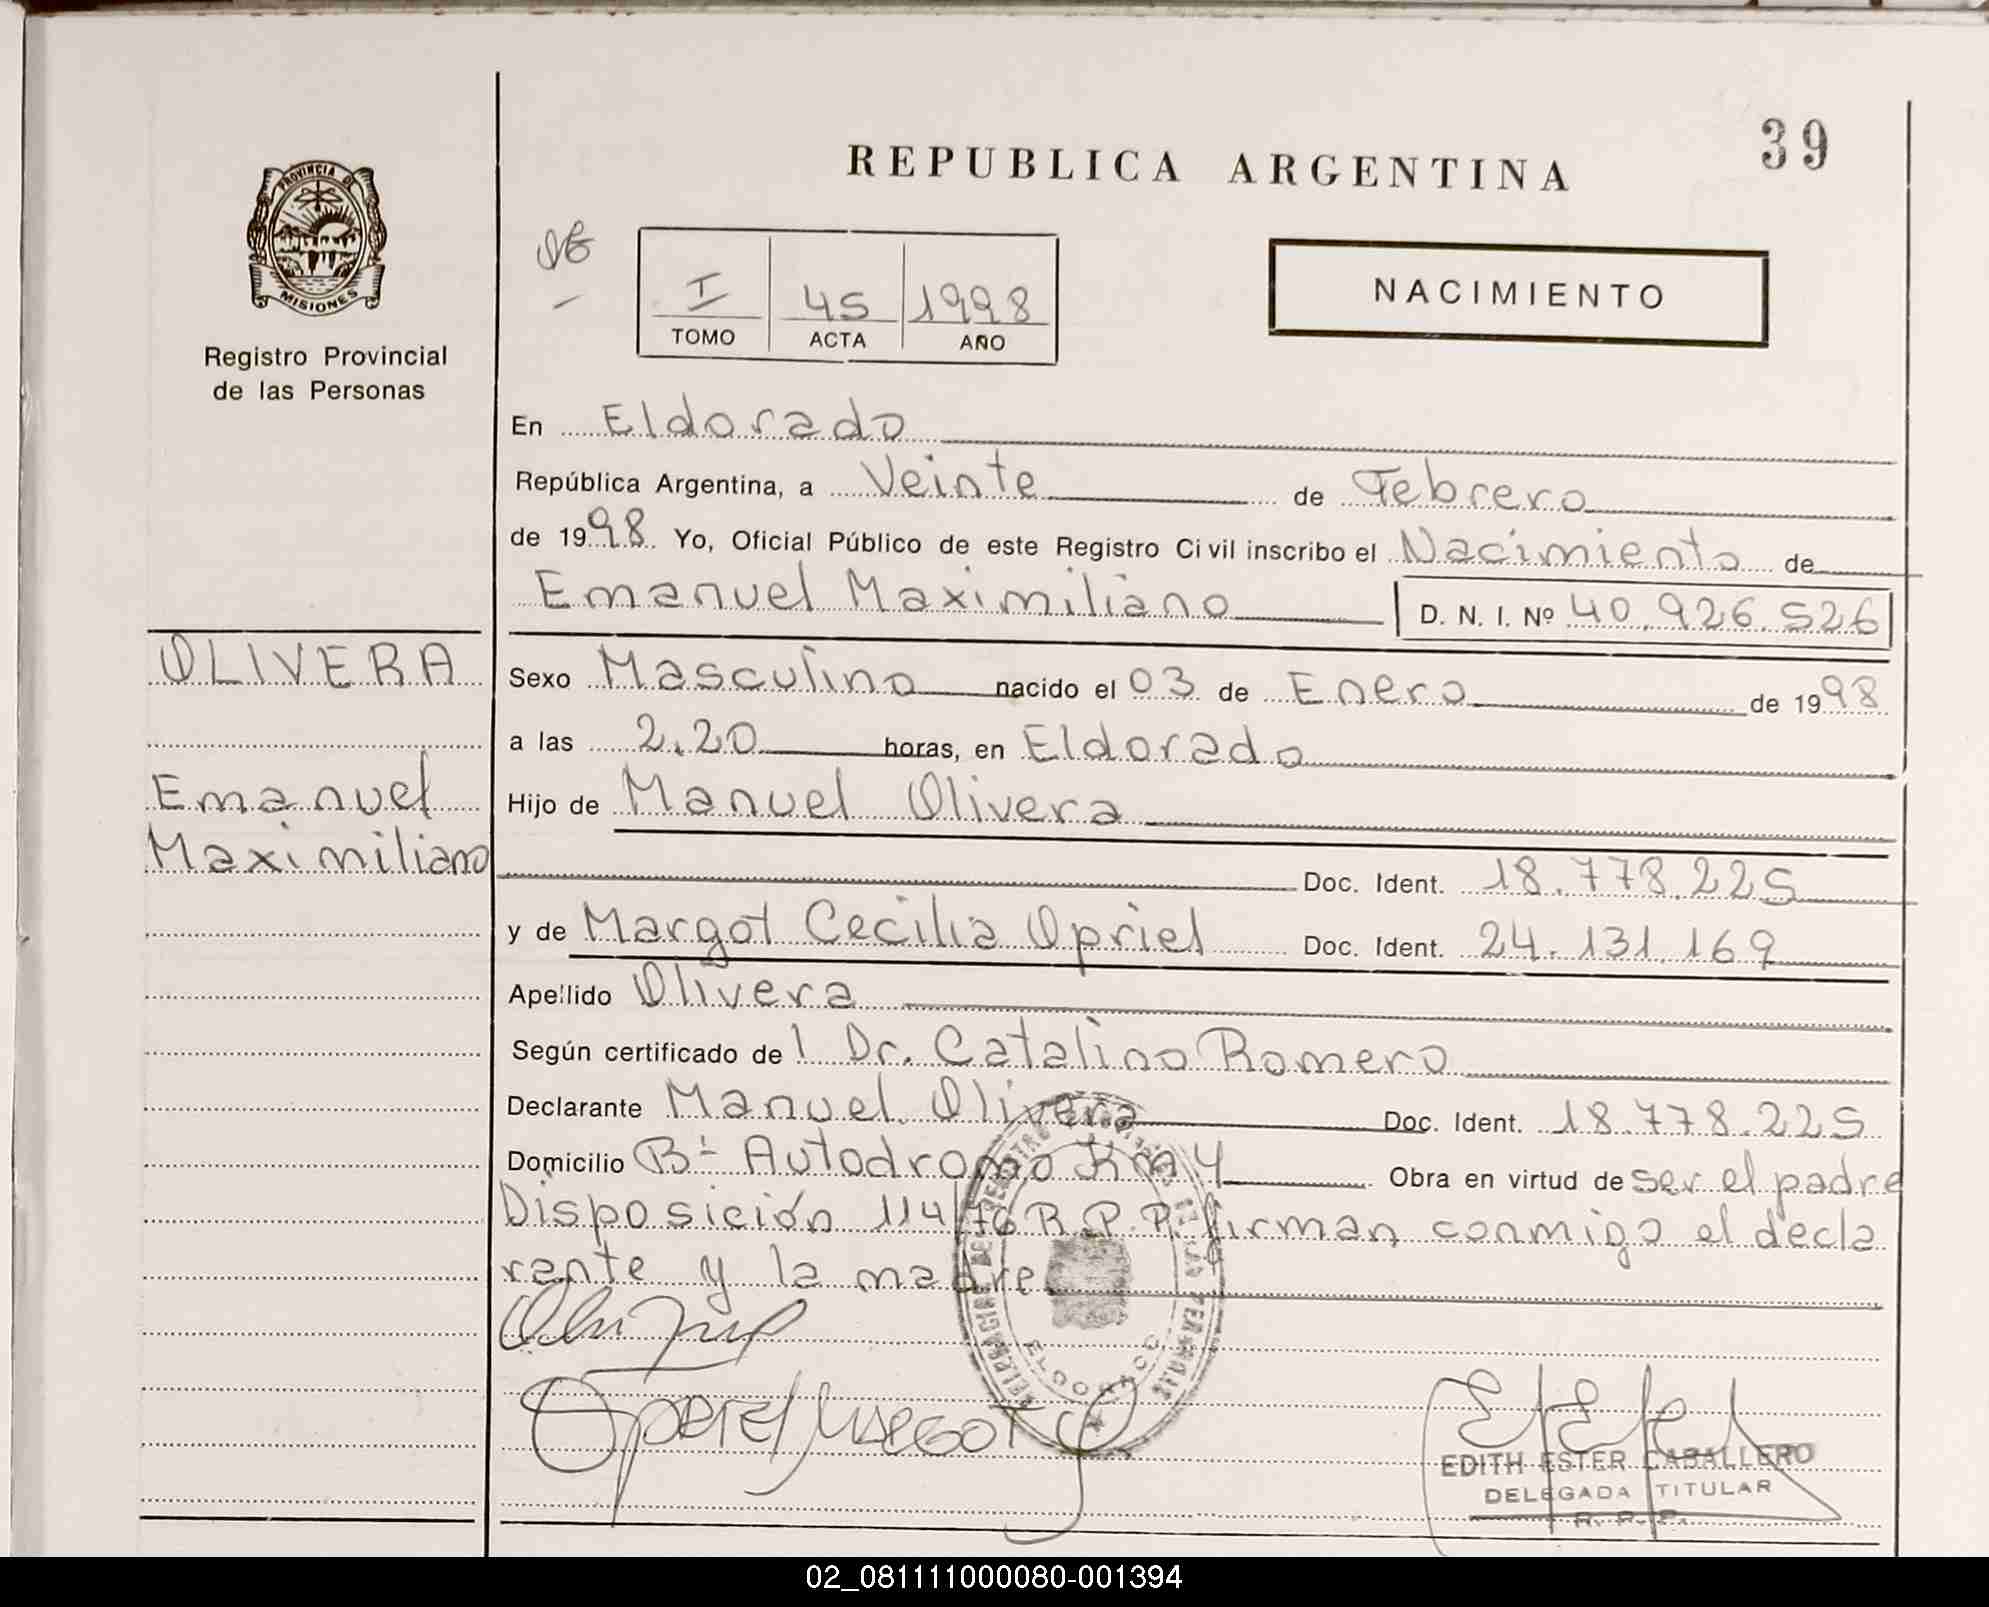 39
REPUBLICA ARGENTINA
PROVINCIA DE
MISIONES
Registro Provincial
de las Personas
NACIMIENTO
I 45 1998
TOMO ACTA AÑO
En Eldorado
República Argentina, a Veinte de Febrero
de 1998 Yo, Oficial Público de este Registro Civil inscribo el Nacimiento de
Emanuel Maximiliano D. N. I. Nº 40.926.526
OLIVERA
Emanuel
Maximiliano
Sexo Masculino nacido el 03 de Enero de 1998
a las 2.20 horas, en Eldorado
Hijo de Manuel Olivera
Doc. Ident. 18.778.225
y de Margot Cecilia Opriel Doc. Ident. 24.131.169
Apellido Olivera
Según certificado de l Dr. Catalino Romero
Declarante Manuel Olivera Doc. Ident. 18.778.225
Domicilio Bº Autodromo Km 4 Obra en virtud de ser el padre
Disposición 114/76 R.P.P. firman conmigo el decla
rante y la madre
ELDORADO
EDITH ESTER CABALLERO
DELEGADA TITULAR
R. P. P.
02_081111000080-001394